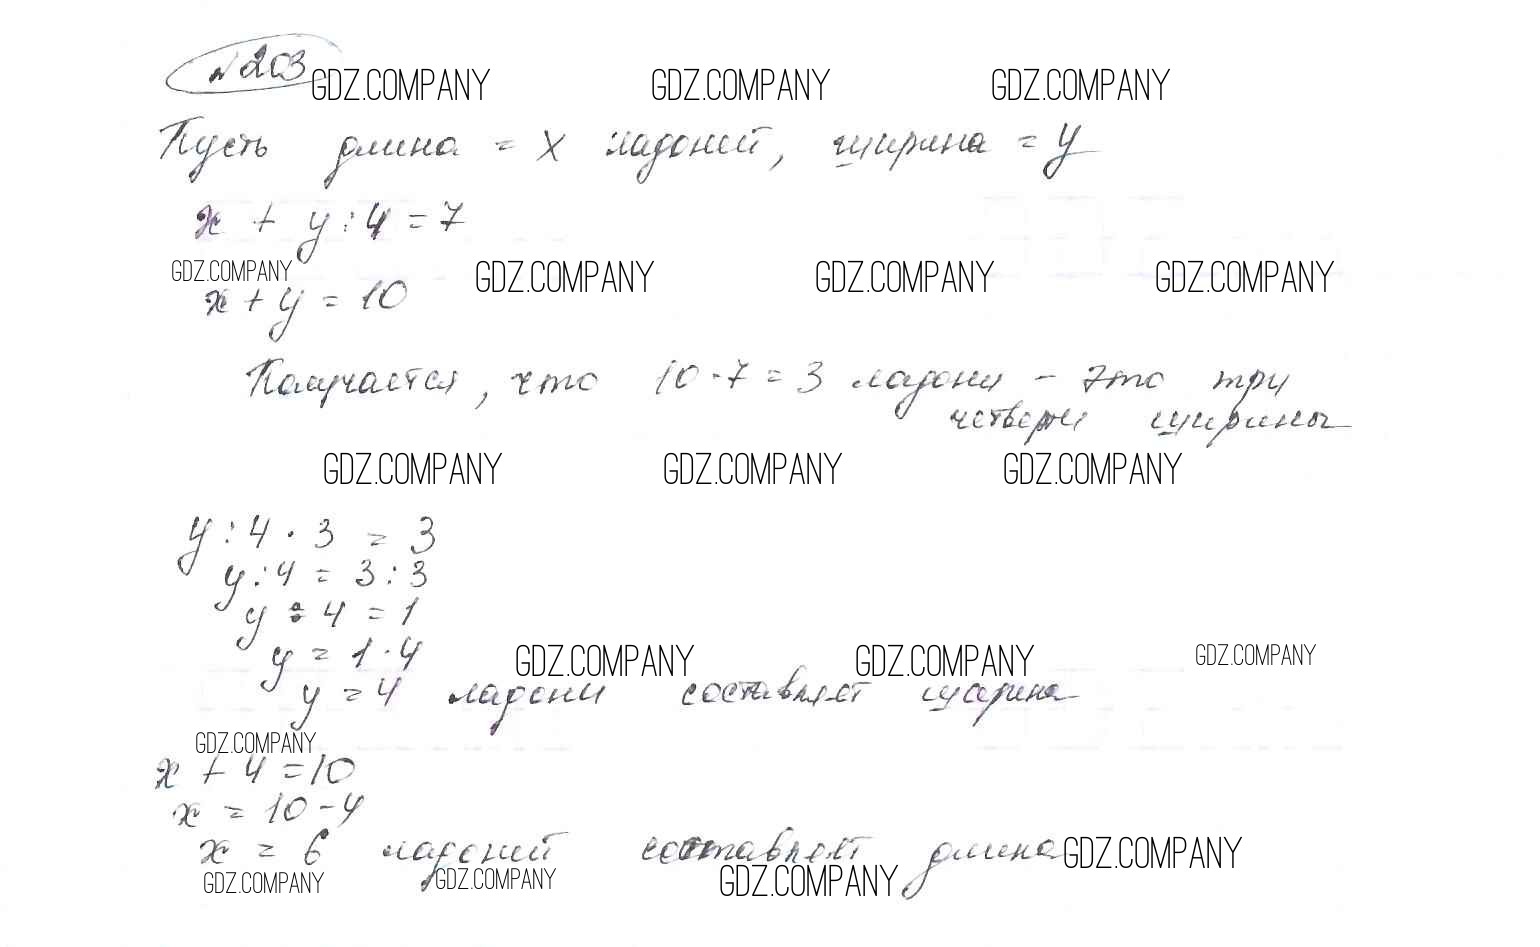 №203
GDZ.COMPANY GDZ.COMPANY GDZ.COMPANY
Пусть длина = x ладоней, ширина = y
x + y : 4 = 7
GDZ.COMPANY GDZ.COMPANY GDZ.COMPANY GDZ.COMPANY
x + y = 10
Получается, что 10 - 7 = 3 ладони - это три
четверти ширины
GDZ.COMPANY GDZ.COMPANY GDZ.COMPANY
y : 4 · 3 = 3
y : 4 = 3 : 3
y : 4 = 1
y = 1 · 4
GDZ.COMPANY GDZ.COMPANY GDZ.COMPANY
y = 4 ладони составляет ширина
GDZ.COMPANY
x + 4 = 10
x = 10 - 4
x = 6 ладоней составляет длина
GDZ.COMPANY
GDZ.COMPANY GDZ.COMPANY GDZ.COMPANY